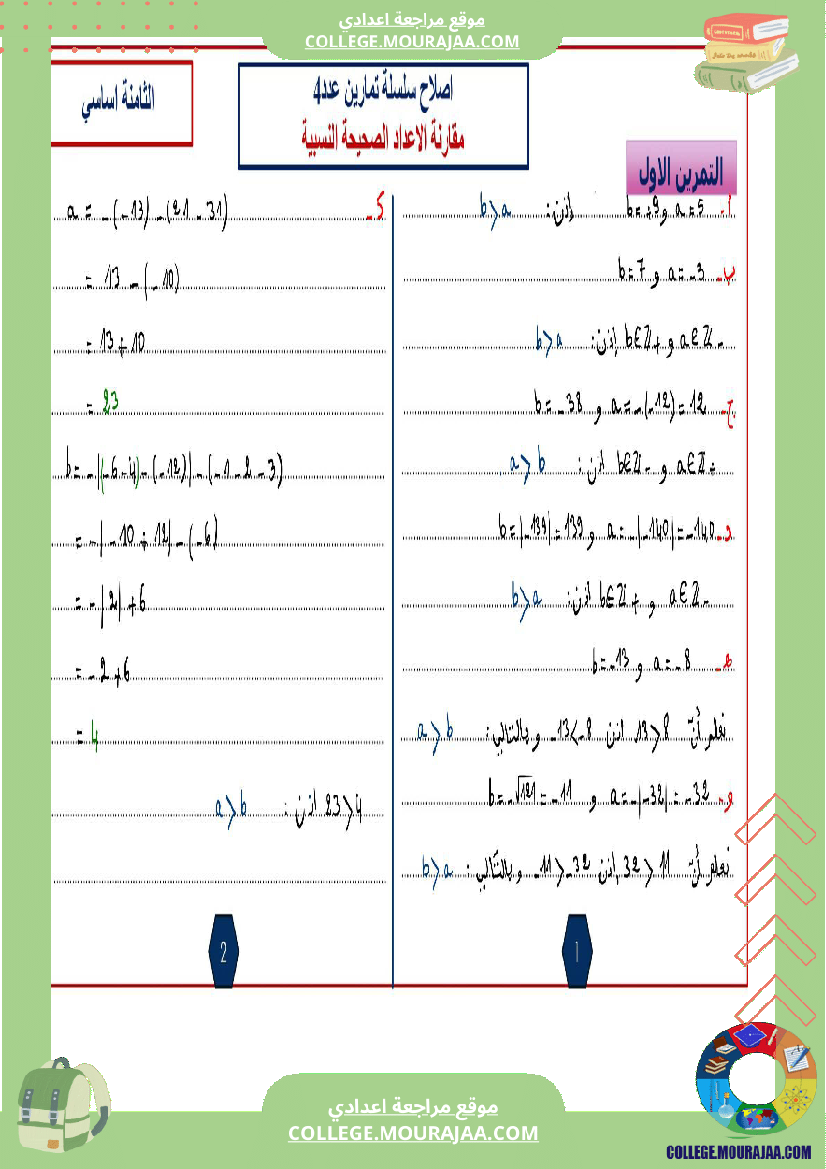 موقع مراجعة اعدادي
COLLEGE.MOURAJAA.COM
الثامنة اساسي
اصلاح سلسلة تمارين عدد4
مقارنة الاعداد الصحيحة النسبية
التمرين الاول
أ- a = 5 و b = +9 إذن: b > a
ب- a = -3 و b = 7
a ∈ ℤ- و b ∈ ℤ+ إذن: b > a
ج- a = -(-12) = 12 و b = -38
a ∈ ℤ+ و b ∈ ℤ- اذن: a > b
د- a = -|-140| = -140 و b = |-139| = 139
a ∈ ℤ- و b ∈ ℤ+ اذن: b > a
ه- a = -8 و b = -13
نعلم أنّ 13 > 8 اذن -13 < -8 وبالتالي: a > b
و- a = -|-32| = -32 و b = -√121 = -11
نعلم أنّ 32 > 11 إذن -11 > -32 وبالتالي: b > a
1
a = -(-13) - (21 - 31)
= 13 - (-10)
= 13 + 10
= 23
b = -|(-6-4) - (-12)| - (-1-2-3)
= -|-10 + 12| - (-6)
= -|2| + 6
= -2 + 6
= 4
23 > 4 اذن: a > b
2
موقع مراجعة اعدادي
COLLEGE.MOURAJAA.COM
COLLEGE.MOURAJAA.COM